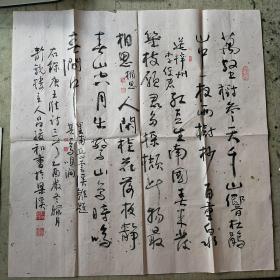 萬壑樹參天千山響杜鵑
山中一夜雨樹杪百重泉
送梓州李使君 紅豆生南國春來發
幾枝願君多採擷此物最
相思 相思 人閒桂花落夜靜
春山空月出驚山鳥時鳴
春澗中 鳥鳴澗
右錄唐王維詩三首乙酉歲冬臘月